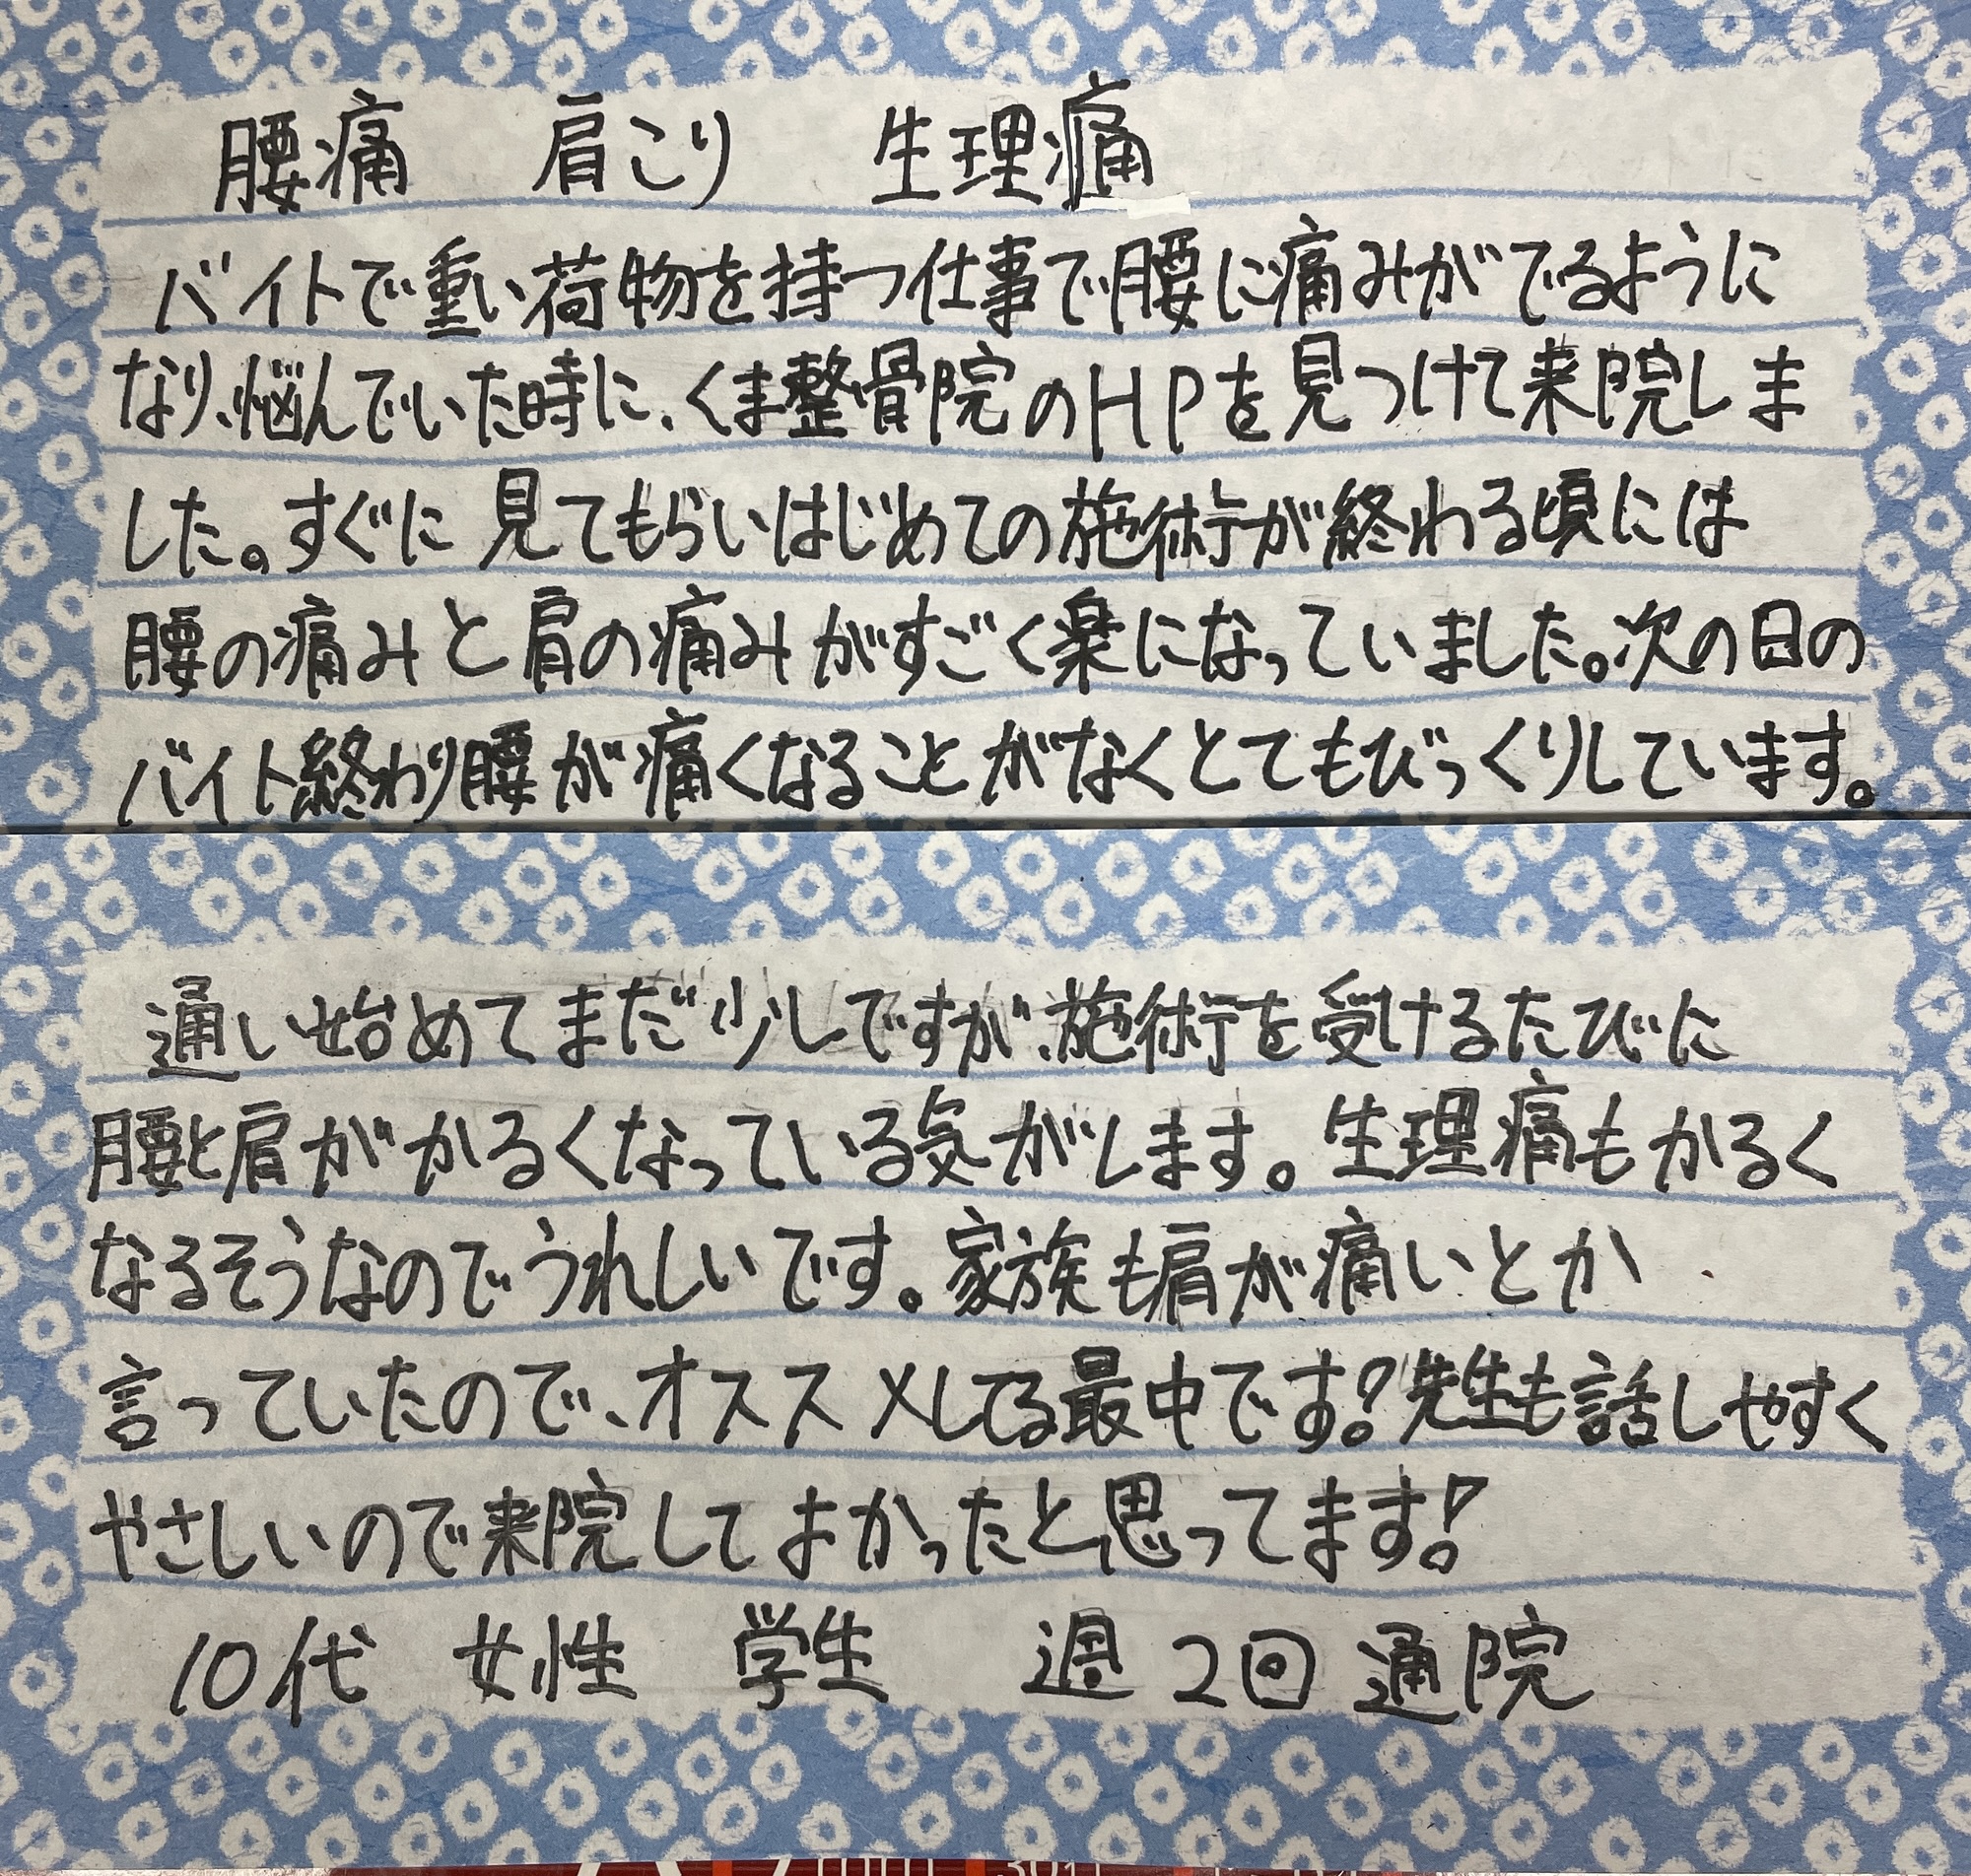 腰痛　肩こり　生理痛
バイトで重い荷物を持つ仕事で腰に痛みがでるように
なり、悩んでいた時に、くま整骨院のHPを見つけて来院しま
した。すぐに見てもらいはじめての施術が終わる頃には
腰の痛みと肩の痛みがすごく楽になっていました。次の日の
バイト終わり腰が痛くなることがなくとてもびっくりしています。
通い始めてまだ少しですが、施術を受けるたびに
腰と肩がかるくなっている気がします。生理痛もかるく
なるそうなのでうれしいです。家族も肩が痛いとか
言っていたので、オススメしてる最中です!先生も話しやすく
やさしいので来院してよかったと思ってます!
10代　女性　学生　週2回通院